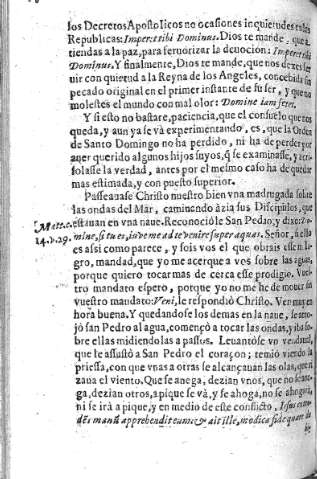 los Decretos Apostolicos no ocasiones inquietudes en las
Republicas: Imperet tibi Dominus. Dios te mande, que a-
tiendas a la paz, para feruorizar la deuocion: Imperet tibi
Dominus. Y finalmente, Dios te mande, que nos dexes vi-
uir con quietud a la Reyna de los Angeles, concebida sin
pecado original en el primer instante de su ser, y que no
molestes el mundo con mal olor: Domine iam fetet.
Y si esto no bastare, paciencia, que el consuelo que nos
queda, y aun ya se và experimentando, es, que la Orden
de Santo Domingo no ha perdido, ni ha de perder por
auer querido algunos hijos suyos, q̃ se examinasse, y acri-
solasse la verdad, antes por el mesmo caso ha de quedar
mas estimada, y con puesto superior.
Passeauase Christo nuestro bien vna madrugada sobre
las ondas del Mar, caminando àzia sus Discipulos, que
estauan en vna naue. Reconociòle San Pedro, y dixo: Do-
Matth. c.
14. v. 29.
mine, si tu es, iube me ad te venire super aquas. Señor, si ello
es assi como parece, y sois vos el que obrais esse mila-
gro, mandad, que yo me acerque a vos sobre las aguas,
porque quiero tocar mas de cerca esse prodigio. Vues-
tro mandato espero, porque yo no me he de mouer sin
vuestro mandato: Veni, le respondiò Christo. Ven muy en
hora buena. Y quedandose los demas en la naue, se arro-
jò san Pedro al agua, començò a tocar las ondas, y iba so-
bre ellas midiendolas a passos. Leuantòse vn vendaual,
que le assustò a San Pedro el coraçon; temiò viendo la
priessa, con que vnas a otras se alcançauan las olas, que ri-
zaua el viento. Que se anega, dezian vnos, que no se ane-
ga, dezian otros, a pique se và, y se ahoga, no se ahogarà,
ni se irà a pique, y en medio de este conflicto, Iesus exten-
dens manũ apprehendit eum, & ait ille, modica fide quare du-